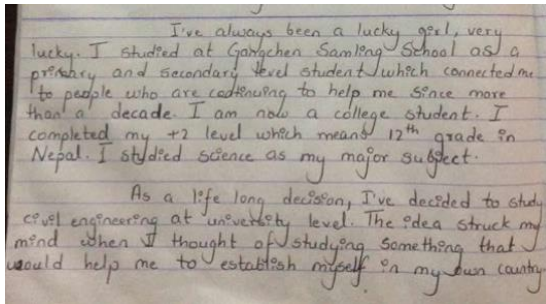 I've always been a lucky girl, very
lucky. I studied at Gangchen Samling School as a
primary and secondary level student which connected me
to people who are continuing to help me since more
than a decade. I am now a college student. I
completed my +2 level which means 12th grade in
Nepal. I studied science as my major subject.
As a life long decision, I've decided to study
civil engineering at university level. The idea struck my
mind when I thought of studying something that
would help me to establish myself in my own country